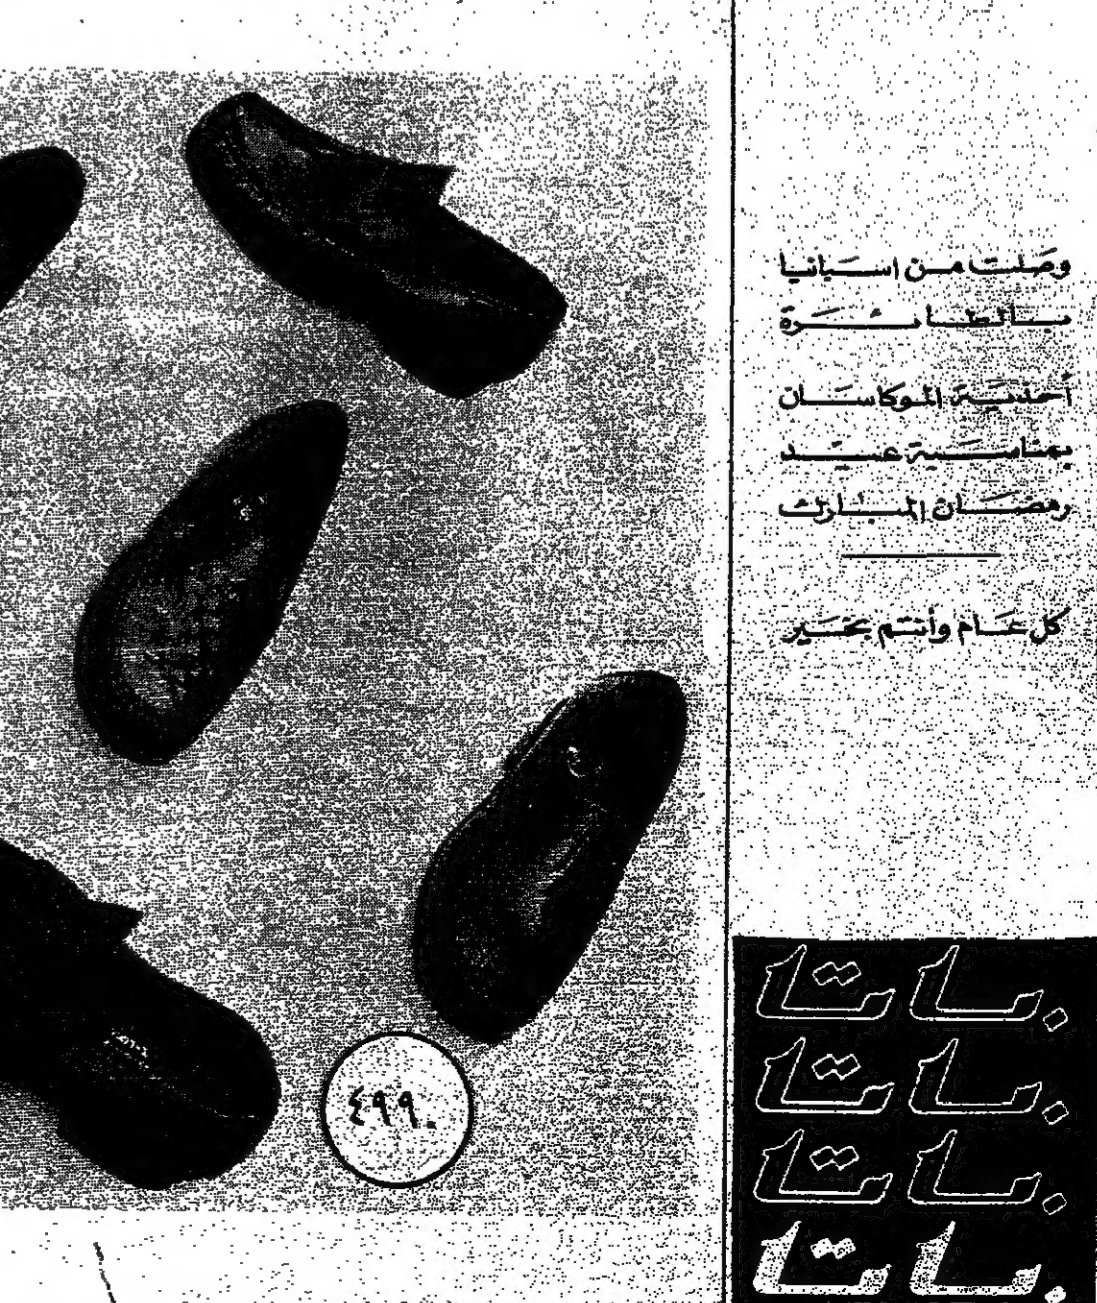 وصلت من اسبانيا
بالطائرة
أحذية الموكاسان
بمناسبة عيد
رمضان المبارك
كل عام وأنتم بخير
٤٩٩٠
باتا
باتا
باتا
باتا